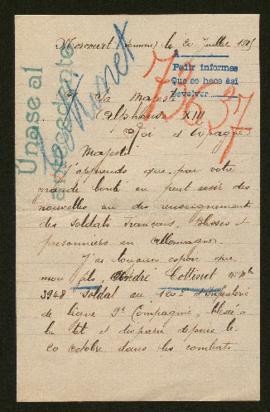 Roscourt (Somme) le 20 Juillet 1915
Pedir informes
Que se hace así
devolver
Unase al
antecedente
Sa Majesté
Alphonse XIII
Roi d'Espagne.
Majesté
J'apprends que, par votre
grande bonté on peut avoir des
nouvelles ou des renseignements
des soldats français, blessés et
prisonniers en Allemagne.
J'ai toujours espoir que
mon fils André Cottinet
3948 soldat au 120e d'infanterie
de ligne 9e Compagnie, blessé à
la tête et disparu depuis le
20 octobre dans les combats